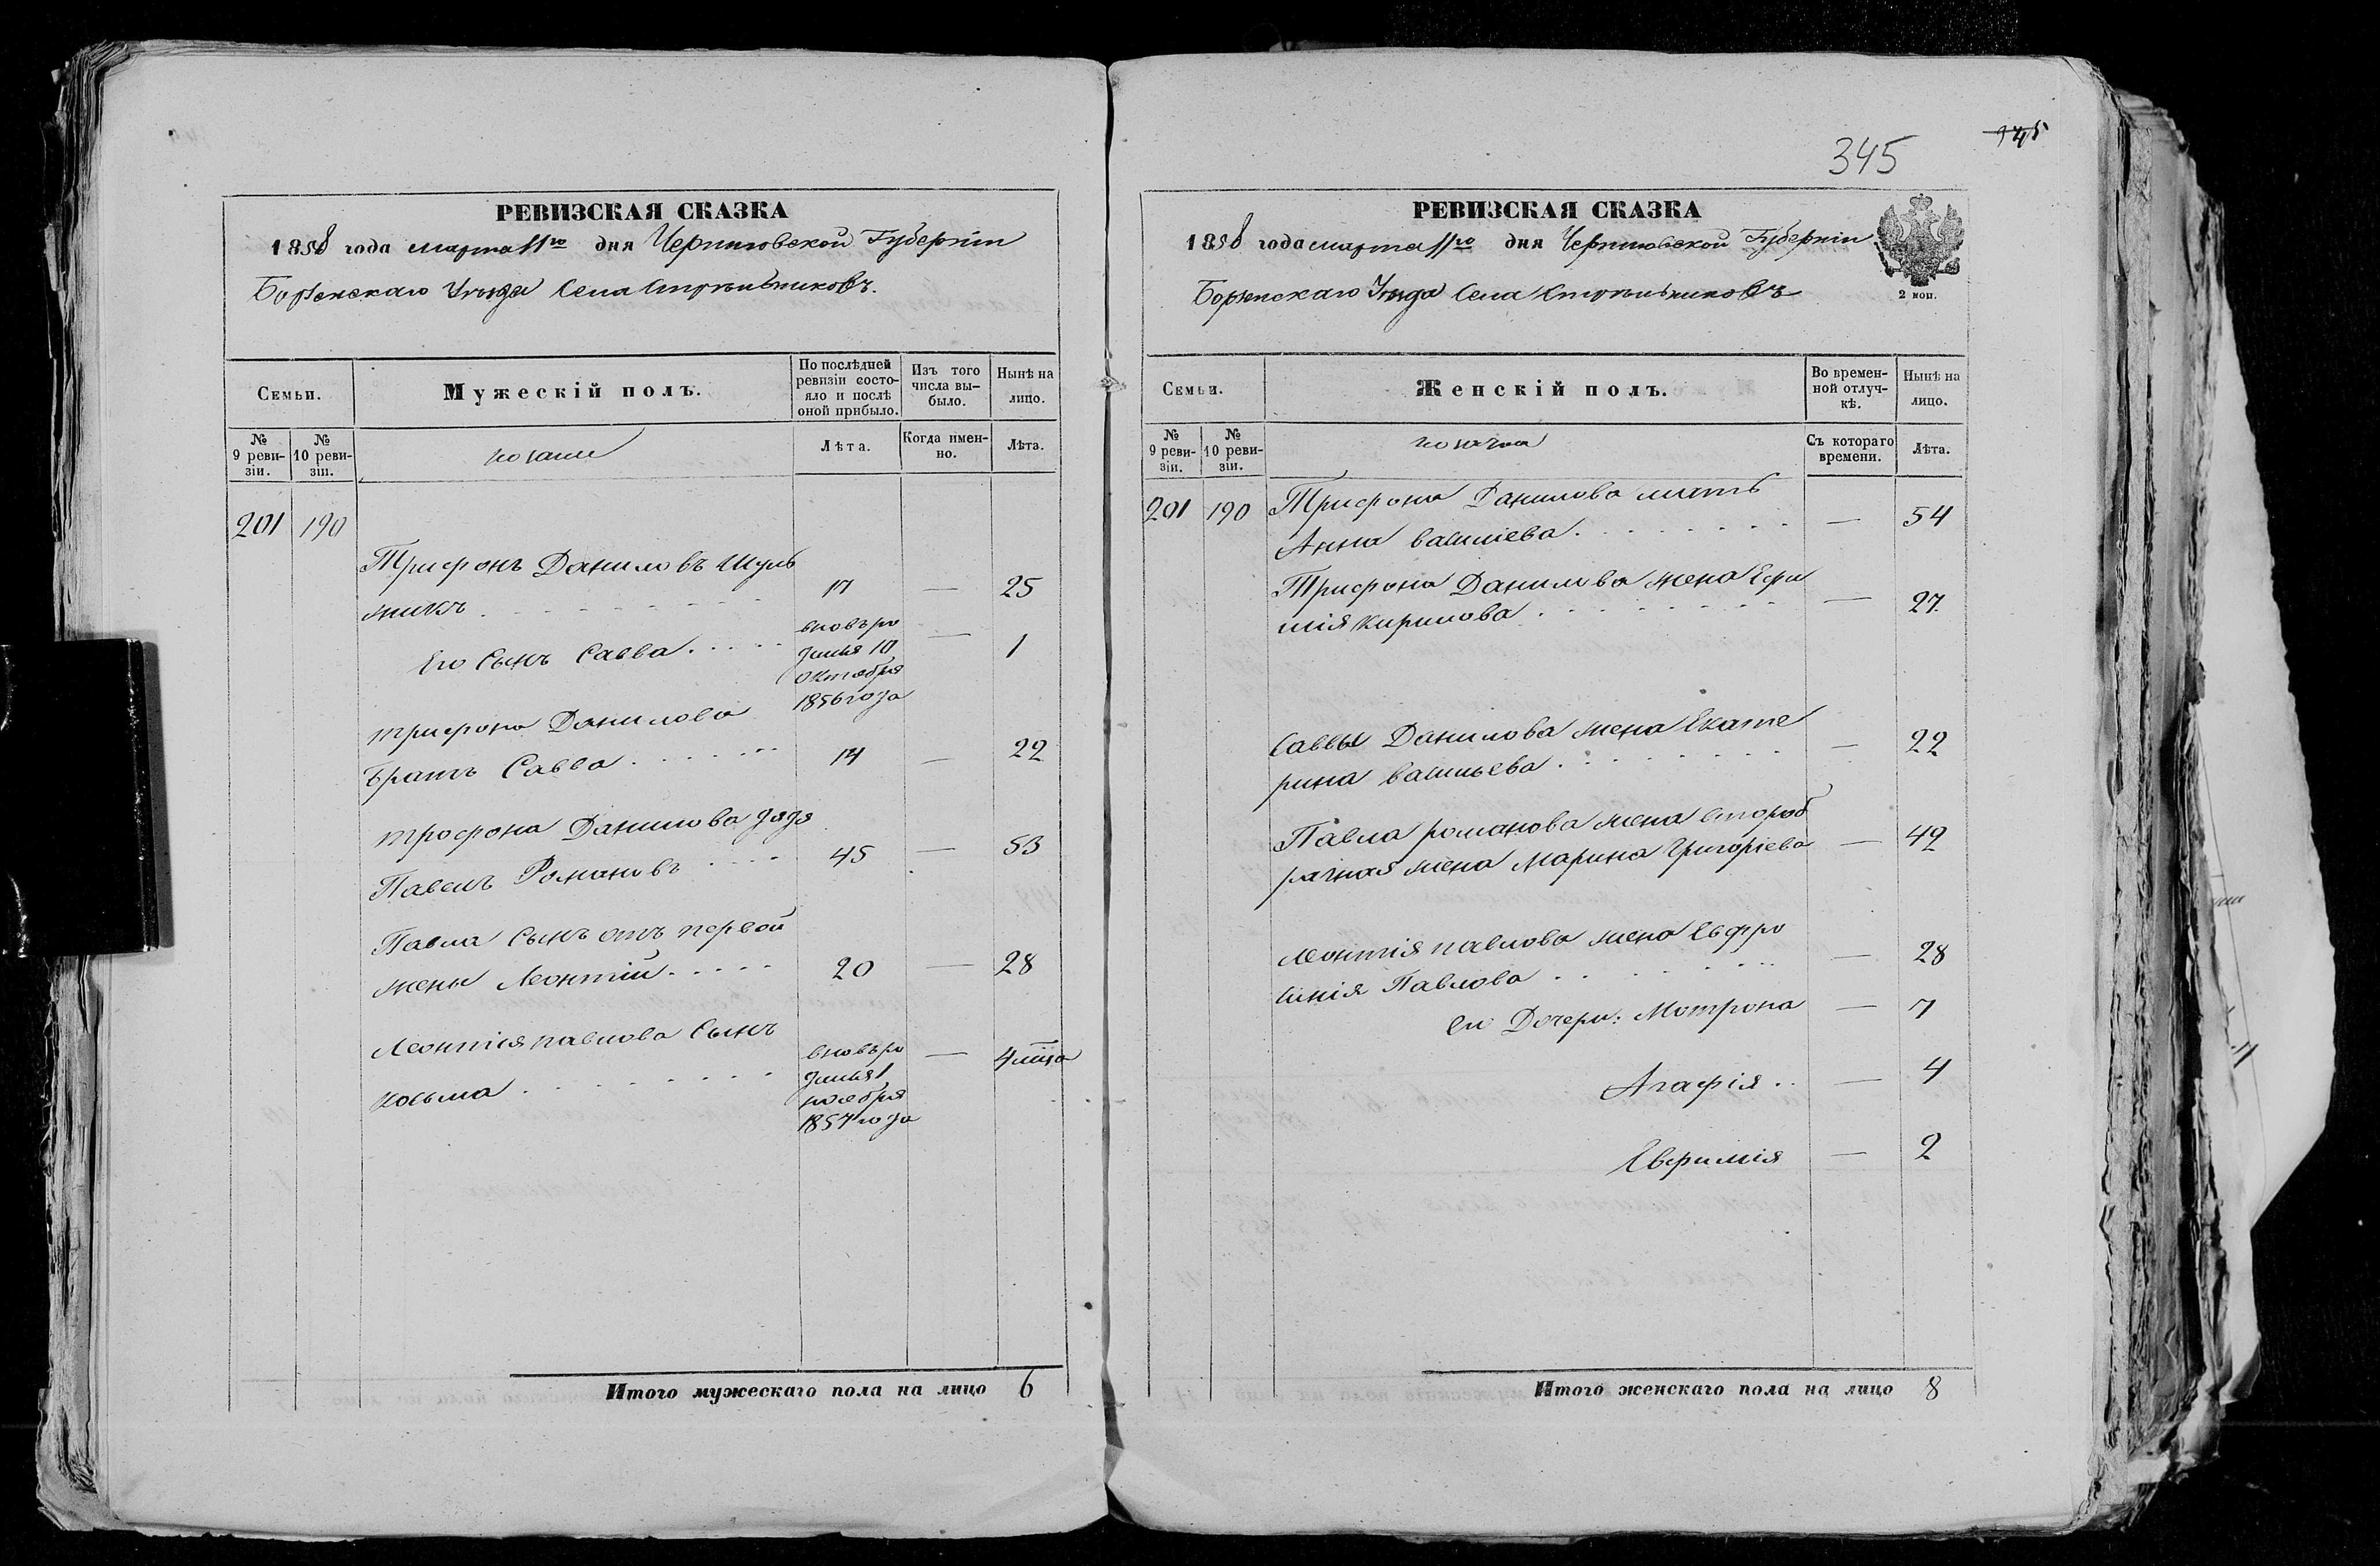 РЕВИЗСКАЯ СКАЗКА
1858 года марта 11го дня Черниговской Губерніи
Борзенскаго Уѣзда Села Стрѣльниковъ.
Семьи.
Мужескій полъ.
По послѣдней ревизіи состояло и послѣ оной прибыло.
Изъ того числа выбыло.
Нынѣ на лицо.
№ 9 ревизіи.
№ 10 ревизіи.
козаки
Лѣта.
Когда именно.
Лѣта.
201 190
Трифонъ Даниловъ Шуль
микъ 17 — 25
Его Сынъ Савва вновь ро
дился 10
октября
1856 года — 1
трифона Данилова
братъ Савва 14 — 22
трофона Данилова дядя
Павелъ Романовъ 45 — 53
Павла Сынъ отъ первой
жены Леонтій 20 — 28
Леонтія павлова Сынъ
Косьма вновь ро
дился 1
ноября
1857 года — 4 мца
Итого мужескаго пола на лицо 6
345
145
РЕВИЗСКАЯ СКАЗКА
1858 года марта 11го дня Черниговской Губерніи
Борзенскаго Уѣзда Села Стрѣльниковъ
2 коп.
Семьи.
Женскій полъ.
Во временной отлучкѣ.
Нынѣ на лицо.
№ 9 ревизіи.
№ 10 ревизіи.
козачки
Съ котораго времени.
Лѣта.
201 190 Трифона Данилова мать
Анна василіева — 54
Трифона Данилова жена Ефи
мія Кирилова — 27
Саввы Данилова жена Екате
рина васильева — 22
Павла романова жена второб
рачная жена Марина Григоріева — 42
леонтія павлова жена Ефро
синія Павлова — 28
его Дочери: Мотрона — 7
Агафія — 4
Евфимія — 2
Итого женскаго пола на лицо 8